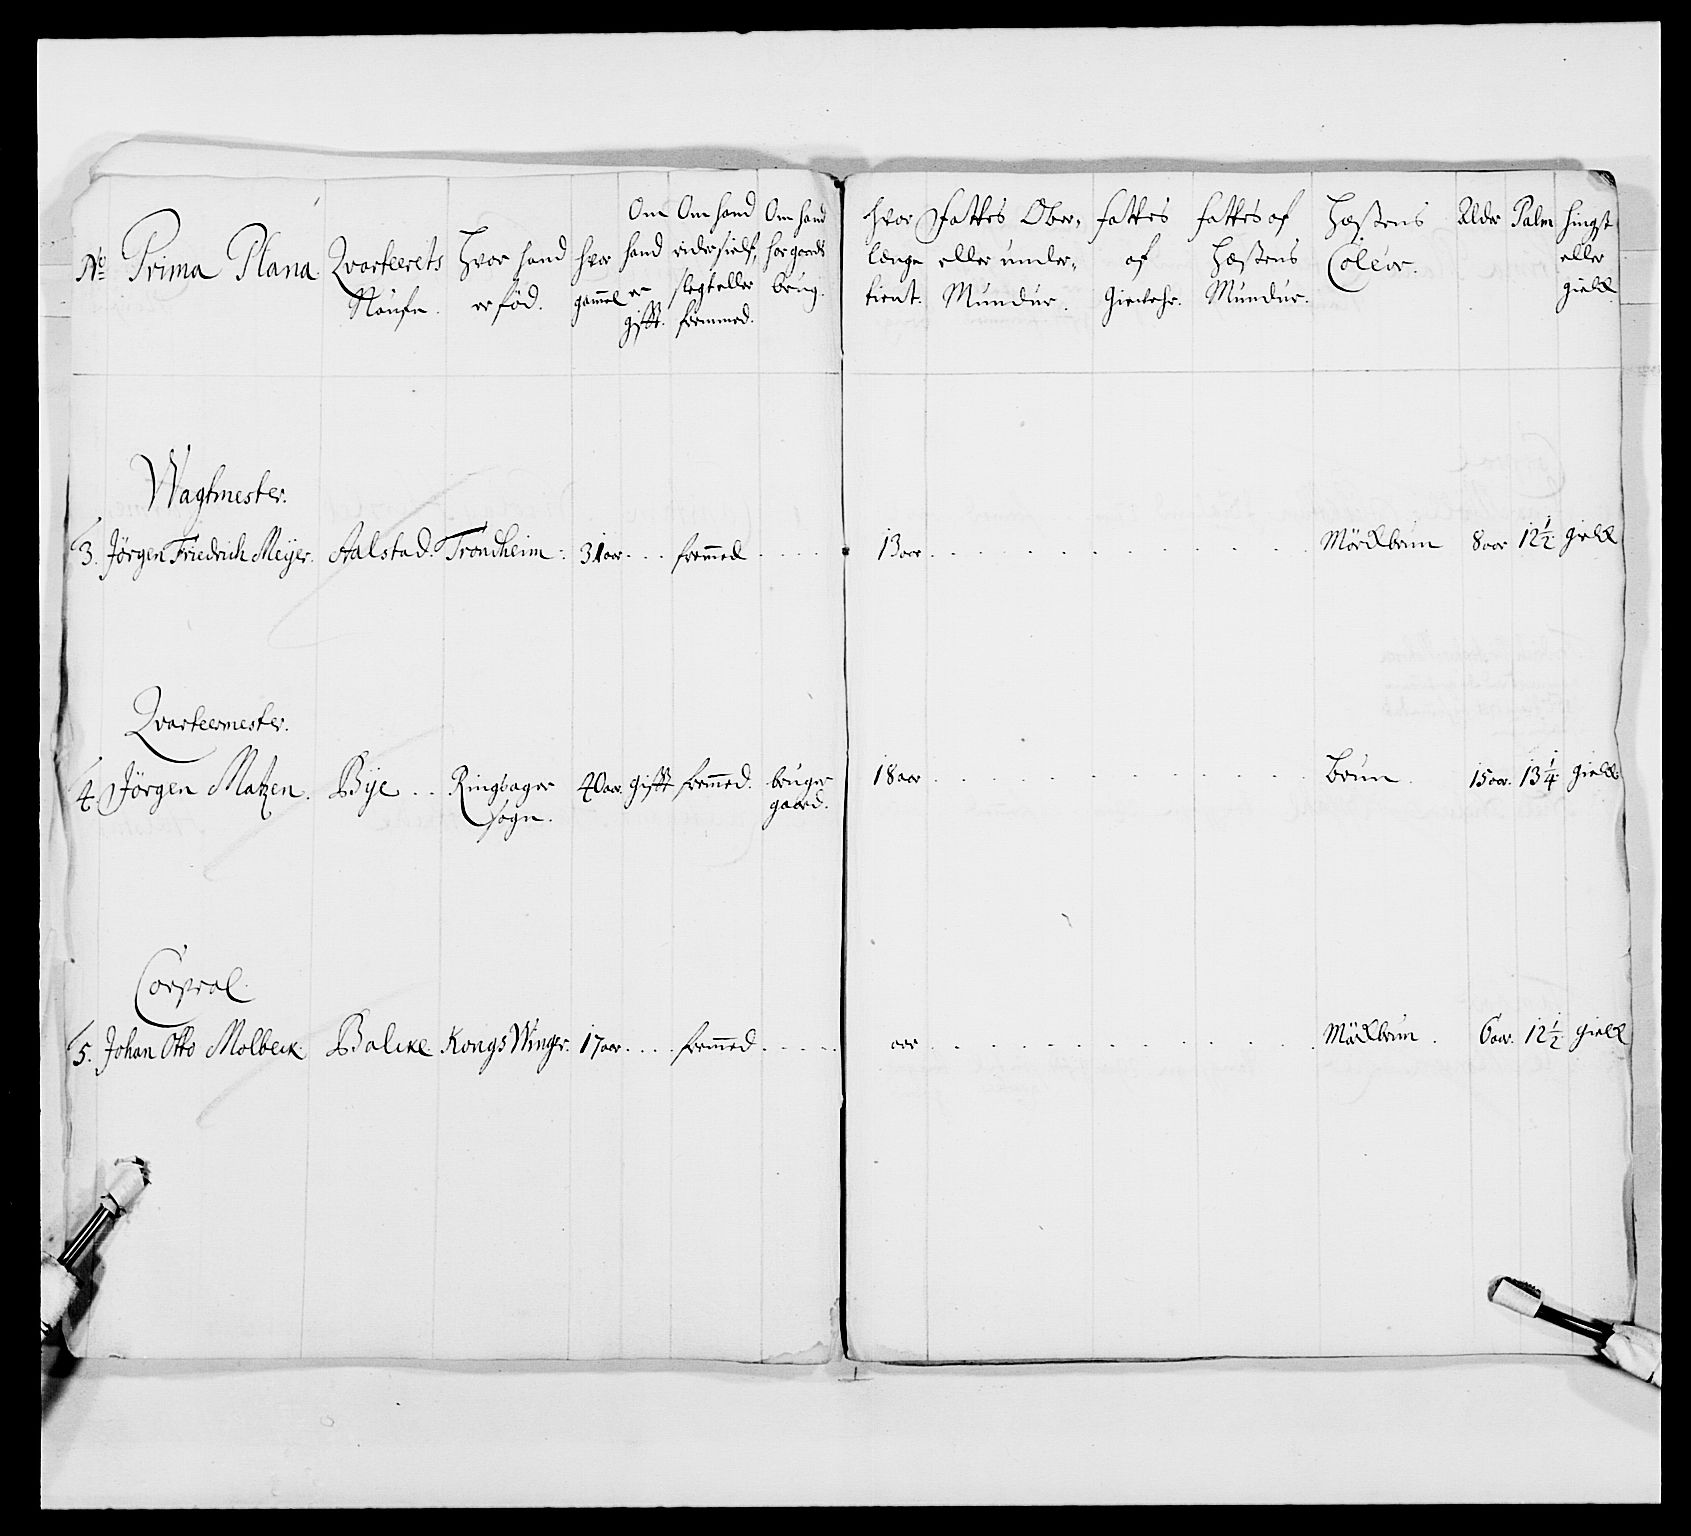 No Prima Plana. Qvarteerets Naufn. Hvor hand er fød. hvor gammel Om hand er gifft. Om hand rider sielf, slegt eller fremmed. Om hand har gaards brug. hvor lenge tient. Fattes Ober- eller under- Mundur. fattes af Giewehr. fattes af Hæstens Mundur. Hæstens Coleur. Alder Palm hingst eller gield.
Wagtmester.
3. Jørgen Friedrich Meÿer. Aalstad. Trondheim. 31 aar. . . fremmed . . . . 13 aar . . . . . . . . . Mörckbrun 8 aar 12 1/2 gield
Qvarteermester.
4. Jørgen Matzen. Bÿe . . Ringsager 40 aar. gifft fremmed. bruger 18 aar . . . . . . . . . brun . 15 aar. 13 1/4 gield
sogn. gaard.
Corpral.
5. Johan Otto Molbeck. Balcke Kongs Winger. 17 aar. . . . fremmed . . . . aar . . . . . . . . . Mörckbrun . 6 aar. 12 1/2 gield
1